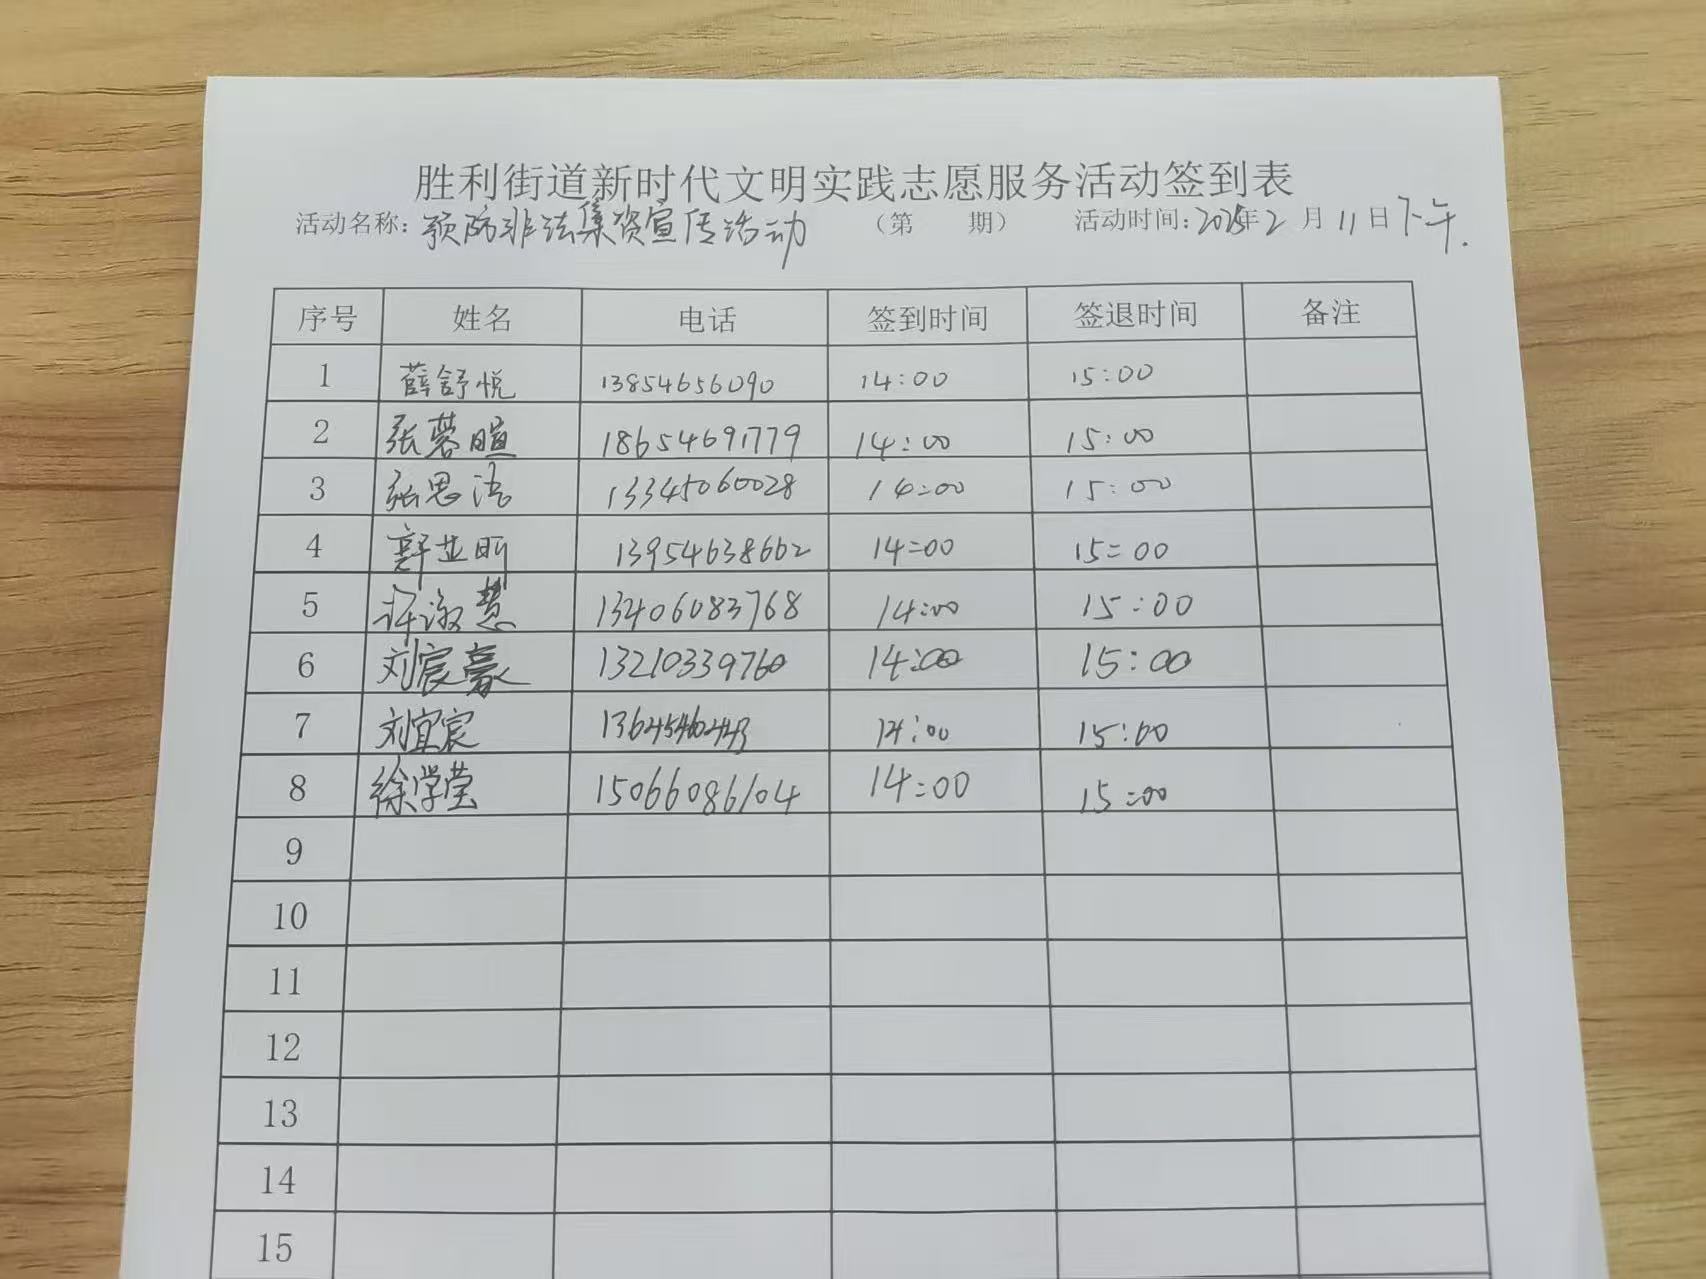 胜利街道新时代文明实践志愿服务活动签到表
活动名称：预防非法集资宣传活动 （第 期） 活动时间：2025年2月11日下午.
序号 姓名 电话 签到时间 签退时间 备注
1 薛舒悦 13854656090 14:00 15:00
2 张蓉暄 18654691779 14:00 15:00
3 张思语 13345060028 14:00 15:00
4 郭世昕 13954638662 14:00 15:00
5 许淑慧 13406083768 14:00 15:00
6 刘宸豪 13210339760 14:00 15:00
7 刘宜宸 14:00 15:00
8 徐学莹 15066086104 14:00 15:00
9
10
11
12
13
14
15